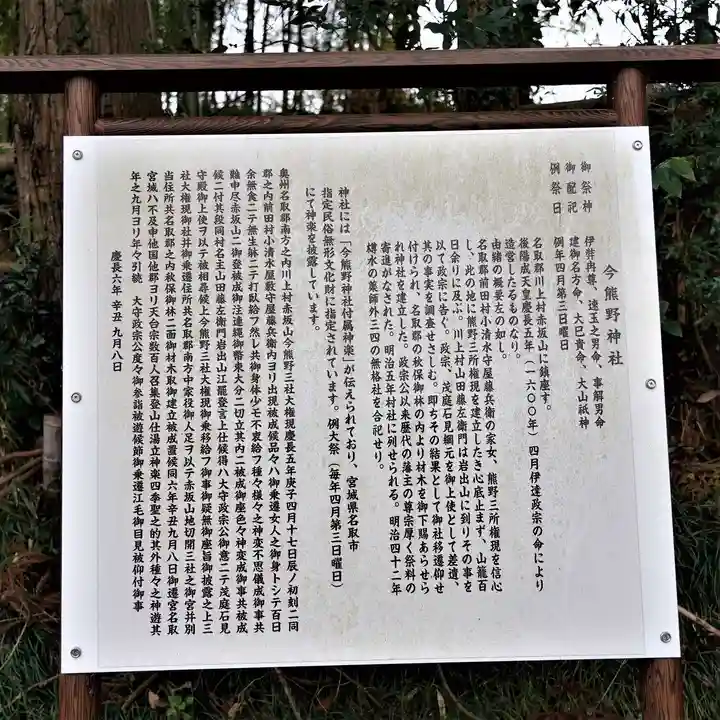 今熊野神社
御祭神　伊弉冉尊、速玉之男命、事解男命
御配祀　建御名方命、大巳貴命、大山祇神
例祭日　例年四月第三日曜日
名取郡川上村赤坂山に鎮座す。
後陽成天皇慶長五年（一六〇〇年）四月伊達政宗の命により
造営したるものなり。
由緒の概要左の如し。
名取郡前田村小清水守屋藤兵衛の家女、熊野三所権現を信心
し、此の地に熊野三所権現を建立したき心底止まず、山籠百
日余りに及ぶ。川上村山田藤左衛門は岩出山に到りその事を
以て政宗に告ぐ。政宗、茂庭石見綱元を御上使として差遣、
其の事実を調査せさしむ。即ちその結果として御社移遷仰せ
付けられ、名取郡の秋保御林の内より材木を御下賜あらせら
れ神社を建立した。政宗公以来歴代の藩主の尊宗厚く祭料の
寄進がなされた。明治五年村社に列せられる。明治四十二年
樽水の薬師外三四の無格社を合祀せり。
神社には「今熊野神社付属神楽」が伝えられており、宮城県名取市
指定民俗無形文化財に指定されています。例大祭（毎年四月第三日曜日）
にて神楽を披露しています。
奥州名取郡南方之内川上村赤坂山今熊野三社大権現慶長五年庚子四月十七日辰ノ初刻二同
郡之内前田村小清水屋敷守屋藤兵衛内ヨリ出現被成候品々ハ御乗遷女人之御身トシテ百日
余無食ニテ無生躰ニテ打臥給フ然レ共御身体少モ不衰給フ種々様々之神変不思儀成御事共
難申尽赤坂山二御登被成御注連縄御幣東大分二切立其内二被成御座色々神変成御事共被成
候二付其段同村名主山田藤左衛門岩出山江罷登言上仕候得ハ大守政宗公御意二テ茂庭石見
守殿御上使ヲ以テ被相尋候上今熊野三社大権現御乗移給フ御事御疑無御座旨御披露之上三
社大権現御社并御乗遷住所共名取郡南方中家役御人足ヲ以テ赤坂山地切開三社之御宮并別
当住所共名取郡之内秋保御林二面御材木取御建立被成置候同六年辛丑九月八日御遷宮名取
宮城ハ不及申他国他郡ヨリ天台宗数百人召集登山仕湯立神楽四季聖之的其外種々之神遊其
年之九月ヨリ年々引続　大守政宗公度々御参詣被遊候節御乗遷江毛御目見被仰付御事
慶長六年 辛丑 九月八日